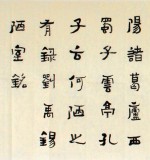 陽諸葛廬西
蜀子雲亭孔
子云何陋之
有錄劉禹錫
陋室銘